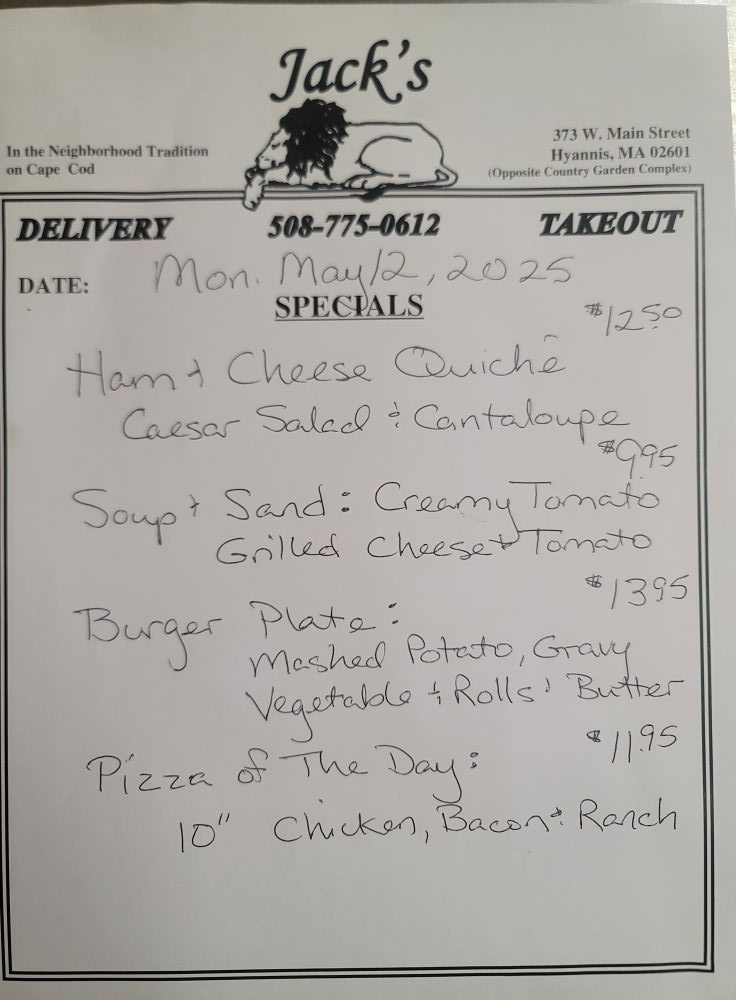 Jack's
In the Neighborhood Tradition
on Cape Cod
373 W. Main Street
Hyannis, MA 02601
(Opposite Country Garden Complex)
DELIVERY 508-775-0612 TAKEOUT
DATE: Mon. May 12, 2025
SPECIALS
$12.50
Ham & Cheese Quiche
Caesar Salad & Cantaloupe
$9.95
Soup & Sand: Creamy Tomato
Grilled Cheese & Tomato
$13.95
Burger Plate:
Mashed Potato, Gravy
Vegetable & Rolls & Butter
$11.95
Pizza of The Day:
10" Chicken, Bacon & Ranch